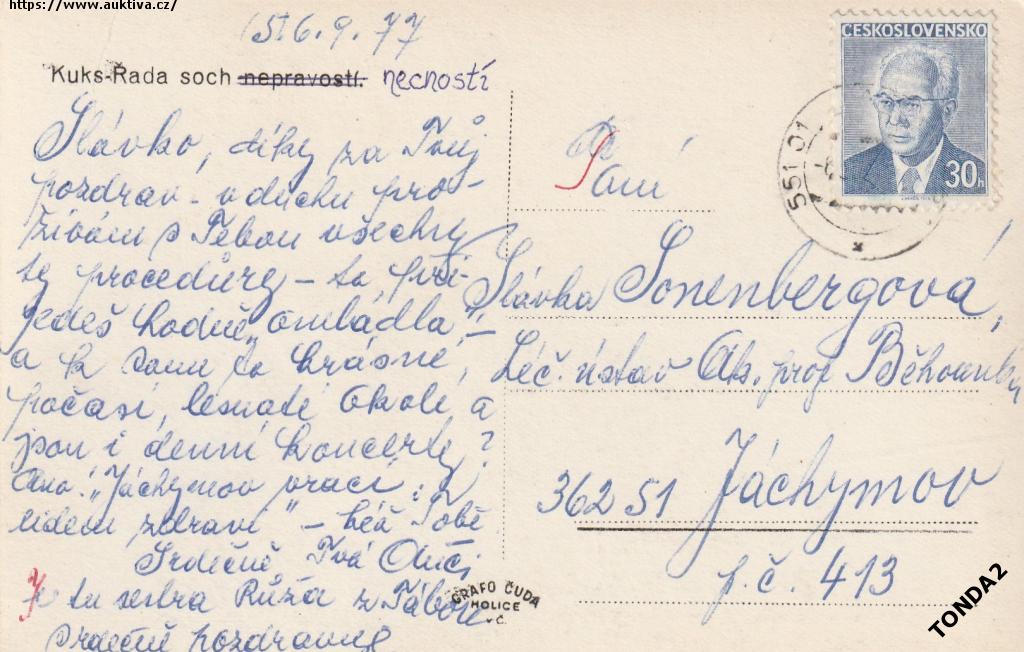 https://www.auktiva.cz/
6.9.77
Kuks-Řada soch nepravostí. necností
Slávko, díky za Tvůj
pozdrav - v duchu pro-
žívám s Tebou všechny
ty procedůry - to při-
jedeš hodně „omládlá" -
a k tomu to krásné,
počasí, lesnaté okolí, a
jsou i denní koncerty?
Ano! „Jáchymov vrací
lidem zdraví" - též Tobě
Srdečně Tvá
Je tu sestra Růža z Tábora
srdečně pozdravuje
ČESKOSLOVENSKO
30h
551 01
Paní
Slávka Sonenbergová,
Léč. ústav Ak. prof Běhounka
362 51 Jáchymov
p.č. 413
GRAFO ČUDA
HOLICE
v Č.
TONDA2